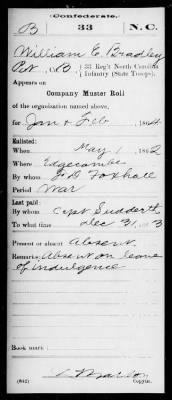 Confederate.
B 33 N.C.
William E. Bradley
Pvt, Co. B, 33 Reg't North Carolina
Infantry (State Troops).
Appears on
Company Muster Roll
of the organization named above,
for Jan & Feb, 1864
Enlisted:
When May 1, 1862
Where Edgecombe
By whom J. D. Foxhall
Period War
Last paid:
By whom Capt Sudderth
To what time Dec 31, 1863
Present or absent Absent
Remarks: Absent on leave
of indulgence
Book mark:
(642) Copyist.